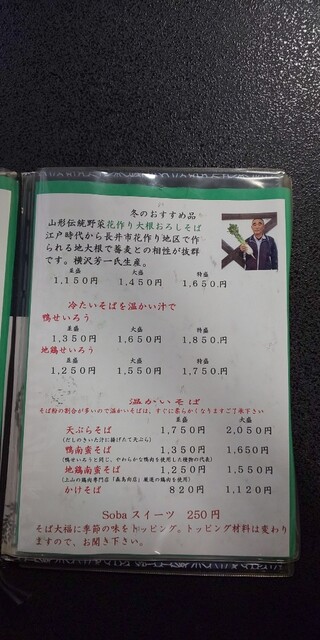 冬のおすすめ品
山形伝統野菜花作り大根おろしそば
江戸時代から長井市花作り地区で作
られる地大根で蕎麦との相性が抜群
です。横沢芳一氏生産。
並盛 大盛 特盛
1,150円 1,450円 1,650円
冷たいそばを温かい汁で
鴨せいろう
並盛 大盛 特盛
1,350円 1,650円 1,850円
地鶏せいろう
並盛 大盛 特盛
1,250円 1,550円 1,750円
温かいそば
そば粉の割合が多いので温かいそばは、すぐに柔らかくなりますご了承下さい
並盛 大盛
天ぷらそば 1,750円 2,050円
(だしのきいた汁に揚げたて天ぷら)
鴨南蛮そば 1,350円 1,650円
(鴨せいろうと同じ、やわらかな鴨肉を使用した種物の代表)
地鶏南蛮そば 1,250円 1,550円
かけそば 820円 1,120円
Sobaスイーツ 250円
そば大福に季節の味をトッピング。トッピング材料は変わり
ますので、お聞き下さい。